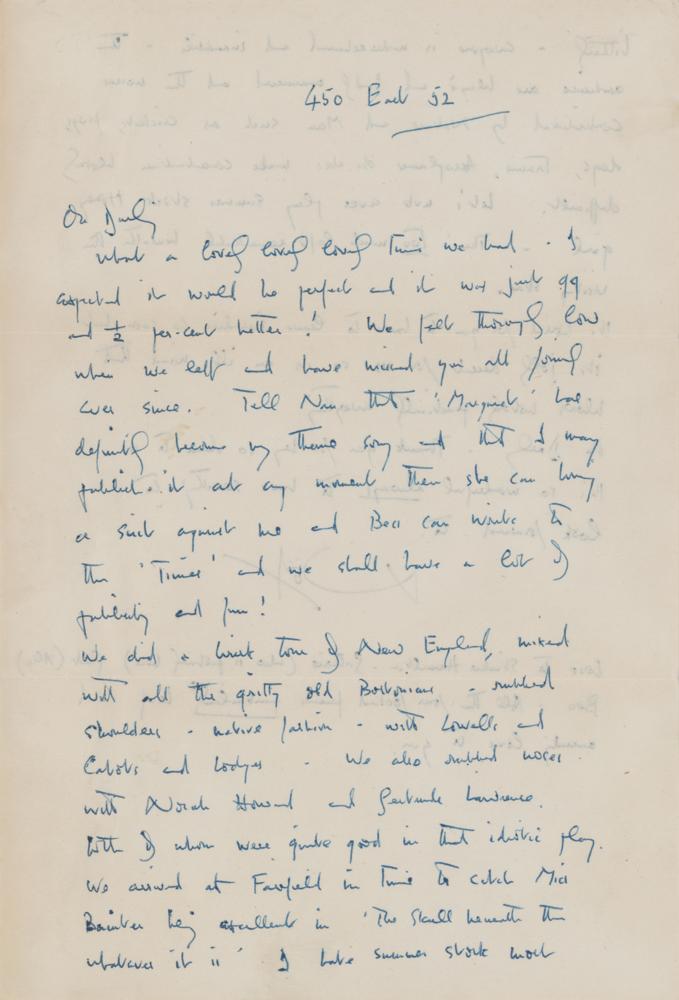 450 East 52
Oh Darling
what a lovely lovely lovely time we had - I
expected it would be perfect and it was just 99
and ½ per-cent better! We felt thoroughly low
when we left and have missed you all
ever since. Tell Nan that 'Marguerite' has
definitely become my theme song and that I may
publish it at any moment then she can bring
a suit against me and Bess can write to
the 'Times' and we shall have a lot of
publicity and fun!
We did a brisk tour of New England, mixed
with all the gritty old Bostonians - rubbed
shoulders - native fashion - with Lowells and
Cabots and Lodges - We also rubbed noses
with Norah Howard and Gertrude Lawrence.
both of whom were quite good in that idiotic play.
We arrived at Fairfield in time to catch Miss
Bainter being excellent in 'The Skull beneath the
whatever it is' I hate summer stock most